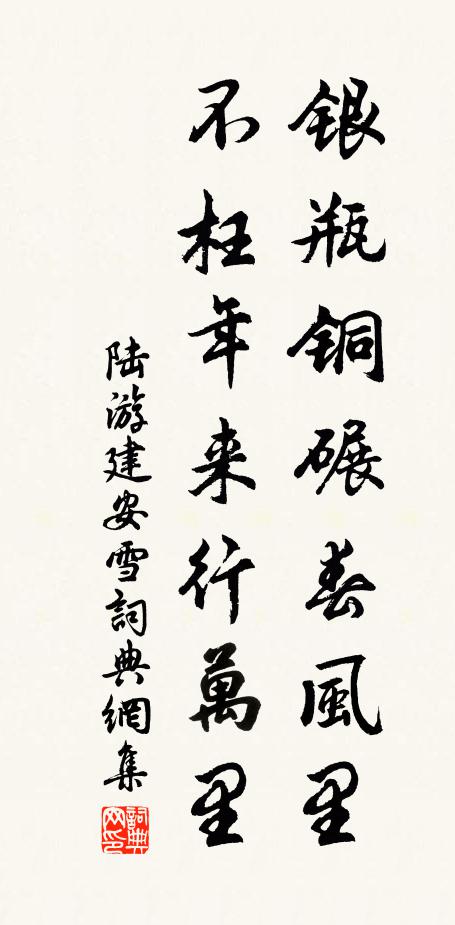 银瓶铜碾春風里
不枉年来行萬里
陆游建安雪詞典網集
詞典网印